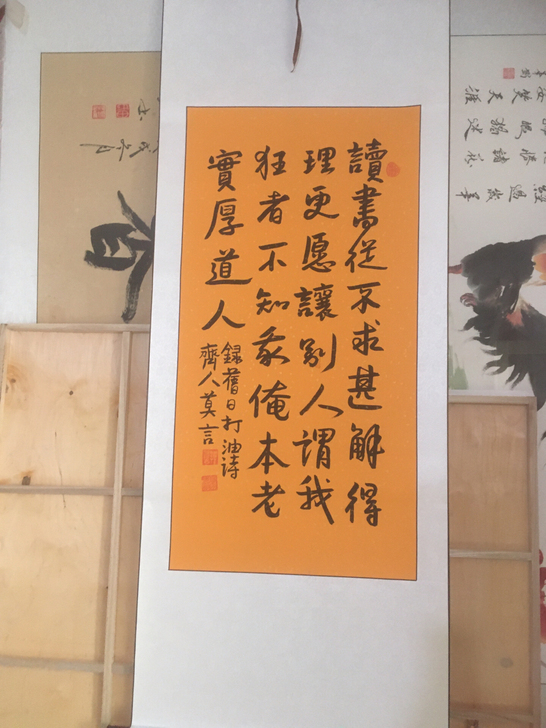 讀書從不求甚解得
理更愿讓别人謂我
狂者不知我俺本老
實厚道人
録舊日打油詩
齊人莫言